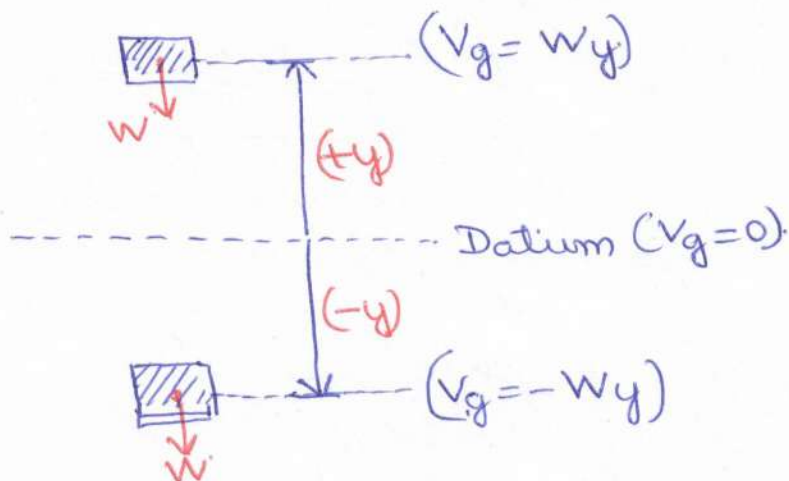 (Vg = Wy)
W
(+y)
Datum (Vg=0).
(-y)
(Vg = -Wy)
W